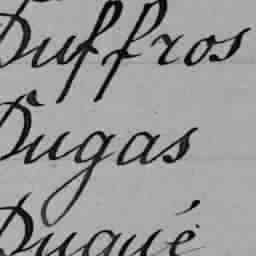 Duffros
Dugas
Dugué